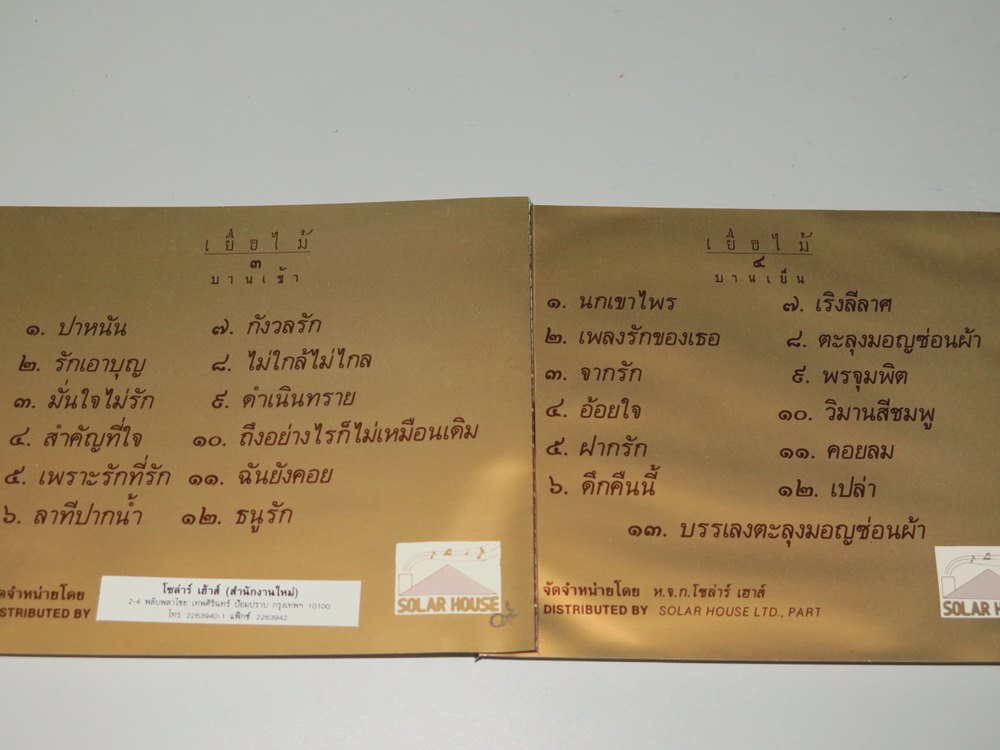 เยื่อไม้
๓
บานเช้า
๑. ปาหนัน
๒. รักเอาบุญ
๓. มั่นใจไม่รัก
๔. สำคัญที่ใจ
๕. เพราะรักที่รัก
๖. ลาทีปากน้ำ
๗. กังวลรัก
๘. ไม่ใกล้ไม่ไกล
๙. ดำเนินทราย
๑๐. ถึงอย่างไรก็ไม่เหมือนเดิม
๑๑. ฉันยังคอย
๑๒. ธนูรัก
จัดจำหน่ายโดย
DISTRIBUTED BY
โซล่าร์ เฮ้าส์ (สำนักงานใหม่)
2-4 พลับพลาไชย เทพศิรินทร์ ป้อมปราบ กรุงเทพฯ 10100
โทร. 2263940-1 แฟ็กซ์. 2263942
SOLAR HOUSE
เยื่อไม้
๔
บานเย็น
๑. นกเขาไพร
๒. เพลงรักของเธอ
๓. จากรัก
๔. อ้อยใจ
๕. ฝากรัก
๖. ดึกคืนนี้
๗. เริงลีลาศ
๘. ตะลุงมอญซ่อนผ้า
๙. พรจุมพิต
๑๐. วิมานสีชมพู
๑๑. คอยลม
๑๒. เปล่า
๑๓. บรรเลงตะลุงมอญซ่อนผ้า
จัดจำหน่ายโดย ห.จ.ก.โซล่าร์ เฮาส์
DISTRIBUTED BY SOLAR HOUSE LTD., PART
SOLAR H